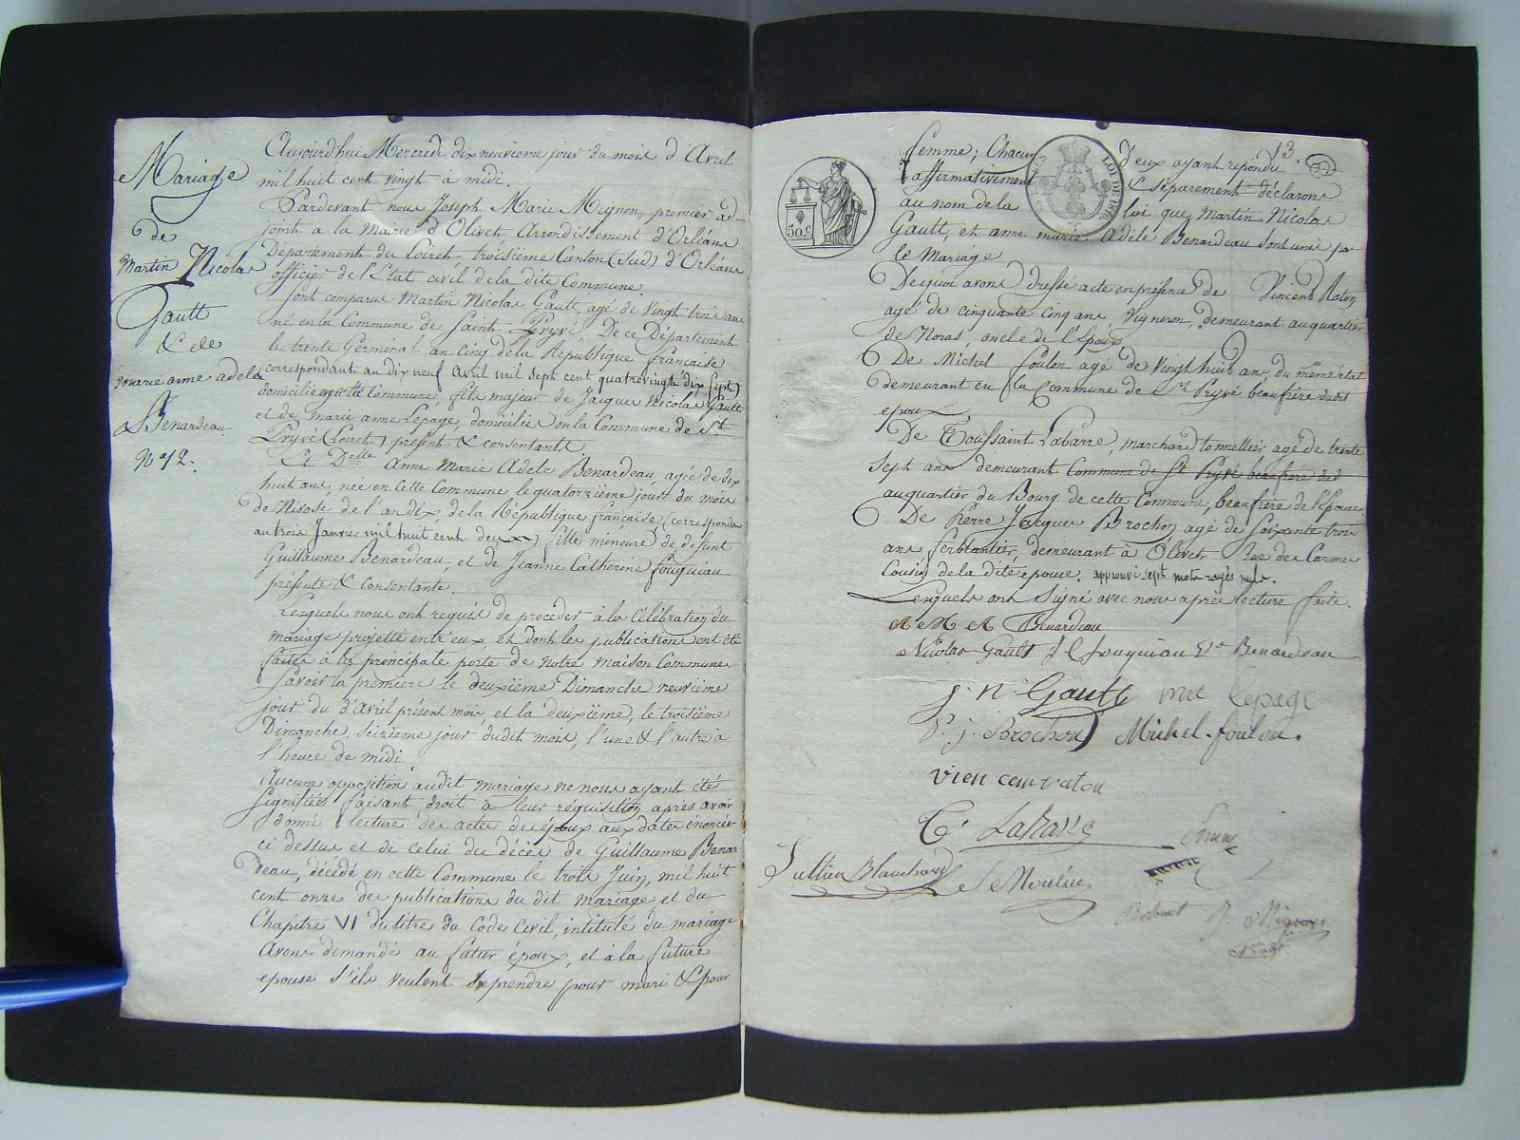 Mariage
de
Martin Nicolas
Gault
& de
marie anne adele
Benardeau
N° 12.
Aujourd'hui Mercredi dix neuvieme jour du mois d'Avril
mil huit cent vingt à midi.
Pardevant nous Joseph Marie Mignon, premier ad
joint à la Mairie d'Olivet Arrondissement d'Orléans
Département du Loiret, troisième Canton (Sud) d'Orléans
officier de l'Etat civil de la dite Commune.
Sont comparus Martin Nicolas Gault, agé de vingt trois ans
né en la Commune de Saint Pryvé, De ce Département
le trente Germinal an Cinq de la République française
correspondant au dix neuf Avril mil sept cent quatrevingt dix sept)
domicilié Commune, fils majeur de Jacques Nicolas Gault
et de marie anne Lepage, domicilié en la Commune de St
Pryvé (Loiret) présent & consentants
Et Delle Anne Marie Adele Benardeau, agée de dix
huit ans, née en Cette Commune le quatorzième jour du mois
de Nivose de l'an dix, de la République française (correspondan
au trois Janvier mil huit cent deux) fille mineure de défunt
Guillaume Benardeau, et de Jeanne Catherine fouquiau
présente & consentante.
Lesquels nous ont requis de procéder à la Célébration du
mariage projetté entr'eux, et dont les publications ont été
faites à la principale porte de notre maison Commune
Savoir la premiere le deuxième Dimanche neuvième
jour du d'avril présent mois, et la deuxième, le troisième
Dimanche, seizieme jour dudit mois, l'une & l'autre à
l'heure de midi.
Aucune opposition audit mariage ne nous ayant été
signifiées faisant droit à leur réquisition après avoir
donné lecture des actes des époux aux dates énoncées
ci dessus et de Celui du décès de Guillaume Benar
deau, décédé en cette Commune le trois Juin, mil huit
cent onze des publications du dit mariage et du
Chapitre VI du titre du Code Civil, intitulé du mariage
Avons demandé au futur époux, et à la future
epouse s'ils veulent se prendre pour mari & pour
13.
femme; Chacun d'eux ayant répondu
& séparement affirmativement déclarons
au nom de la loi que Martin Nicolas
Gault, et anne marie Adèle Benardeau sont unis par
le Mariage
De quoi avons dressé acte en présence de Vincent Raton
agé de cinquante cinq ans, vigneron, demeurant au quartier
de Noras, oncle de l'époux
De Michel foulon agé de vingt huit ans, du même état
demeurant en la Commune de St Pryvé beaufrère dudit
epoux.
De Toussaint Labarre, marchand tonnellier, agé de trente
sept ans demeurant Commune de St Pryvé beaufrère dud
au quartier du Bourg de cette Commune, beaufrère de l'Epouse
De Pierre Jacques Brochon agé de soixante trois
ans, ferblantier, demeurant à Olivet Rue des Carmes
Cousin de la dite epouse. approuvé sept mots rayés nuls.
Lesquels ont signé avec nous après lecture faite.
A M A Benardeau
Nicolas Gault J C fouquiau Ve Benardeau
j. n. Gault mel lepage
P. j. Brochon Michel foulon.
vien cent raton
T. Labarre
Jullien Blanchard
Mignon
50 C
LOI DE 1816